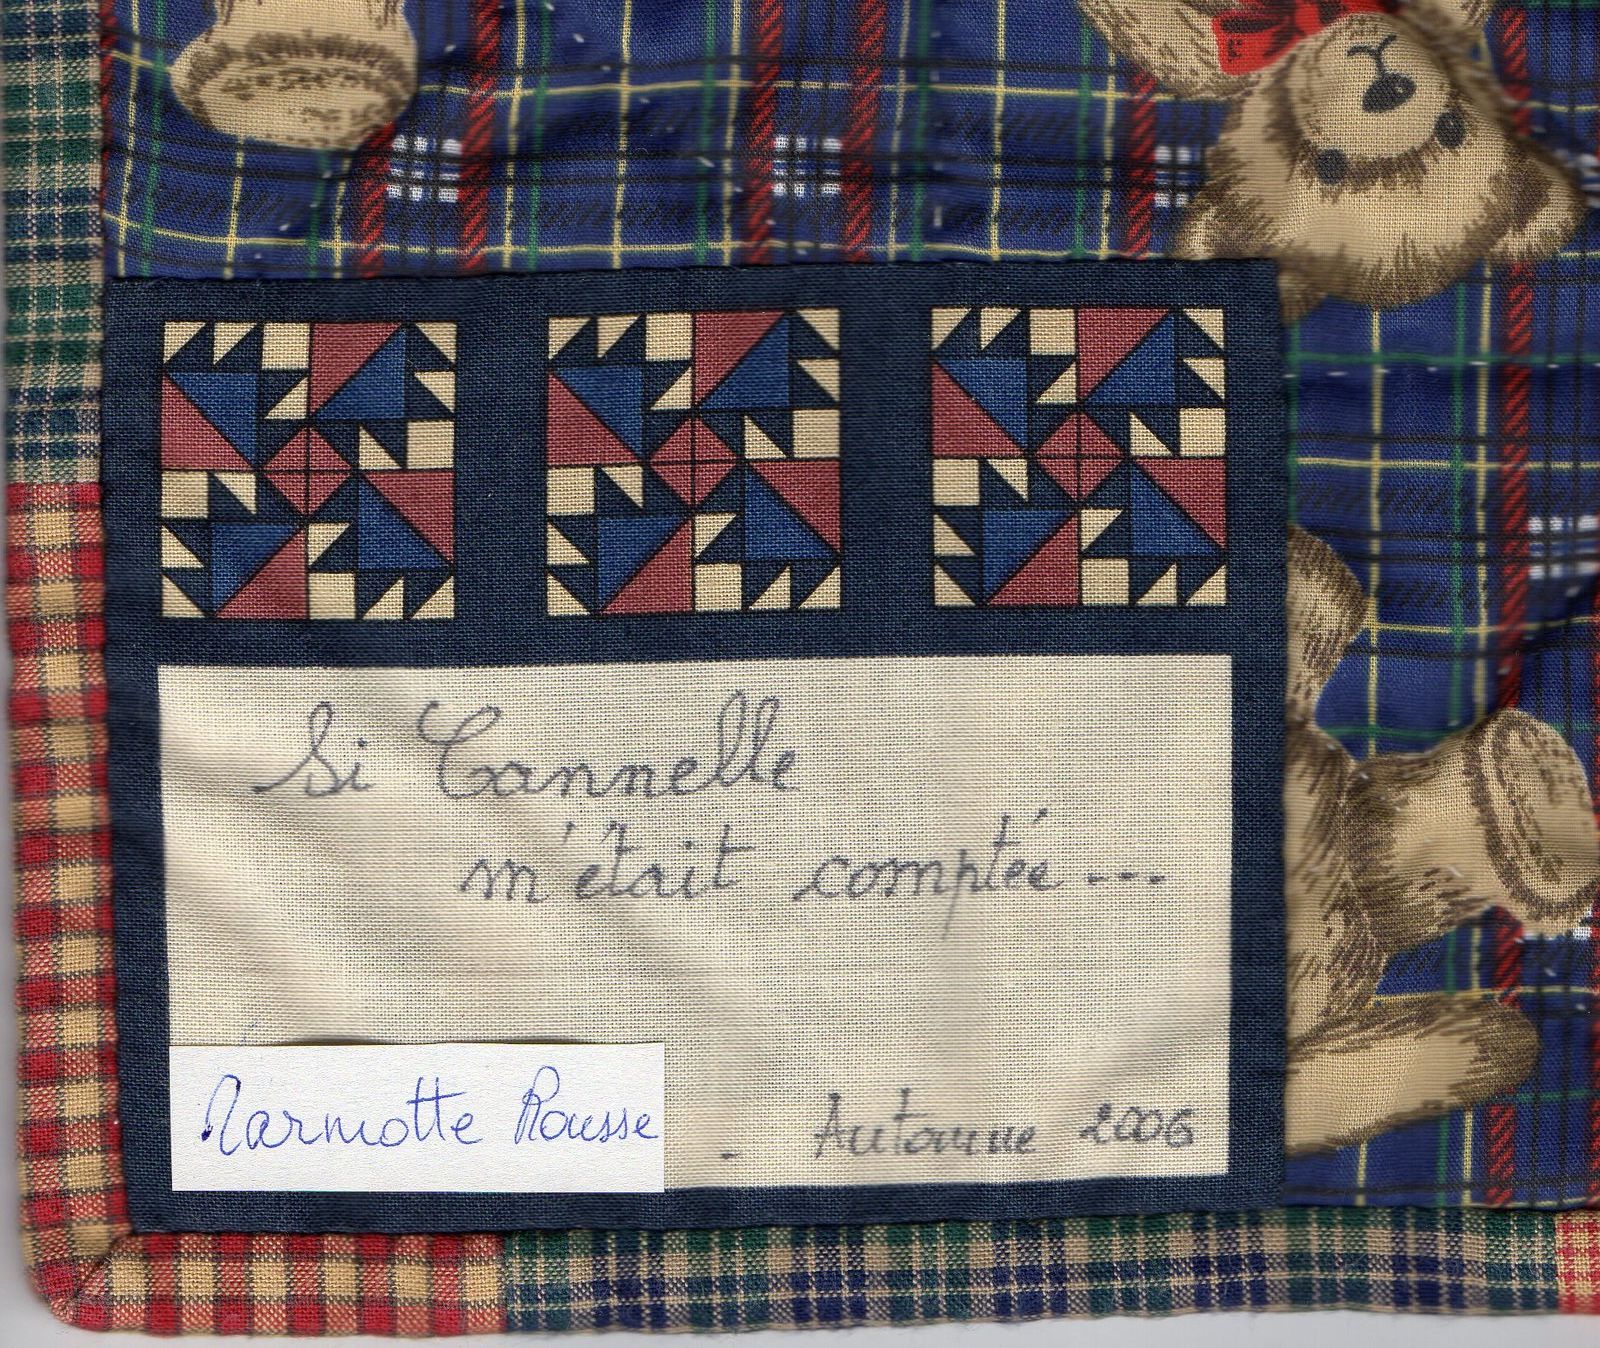 Si Cannelle
m'était comptée...
Marmotte Rousse
Automne 2006